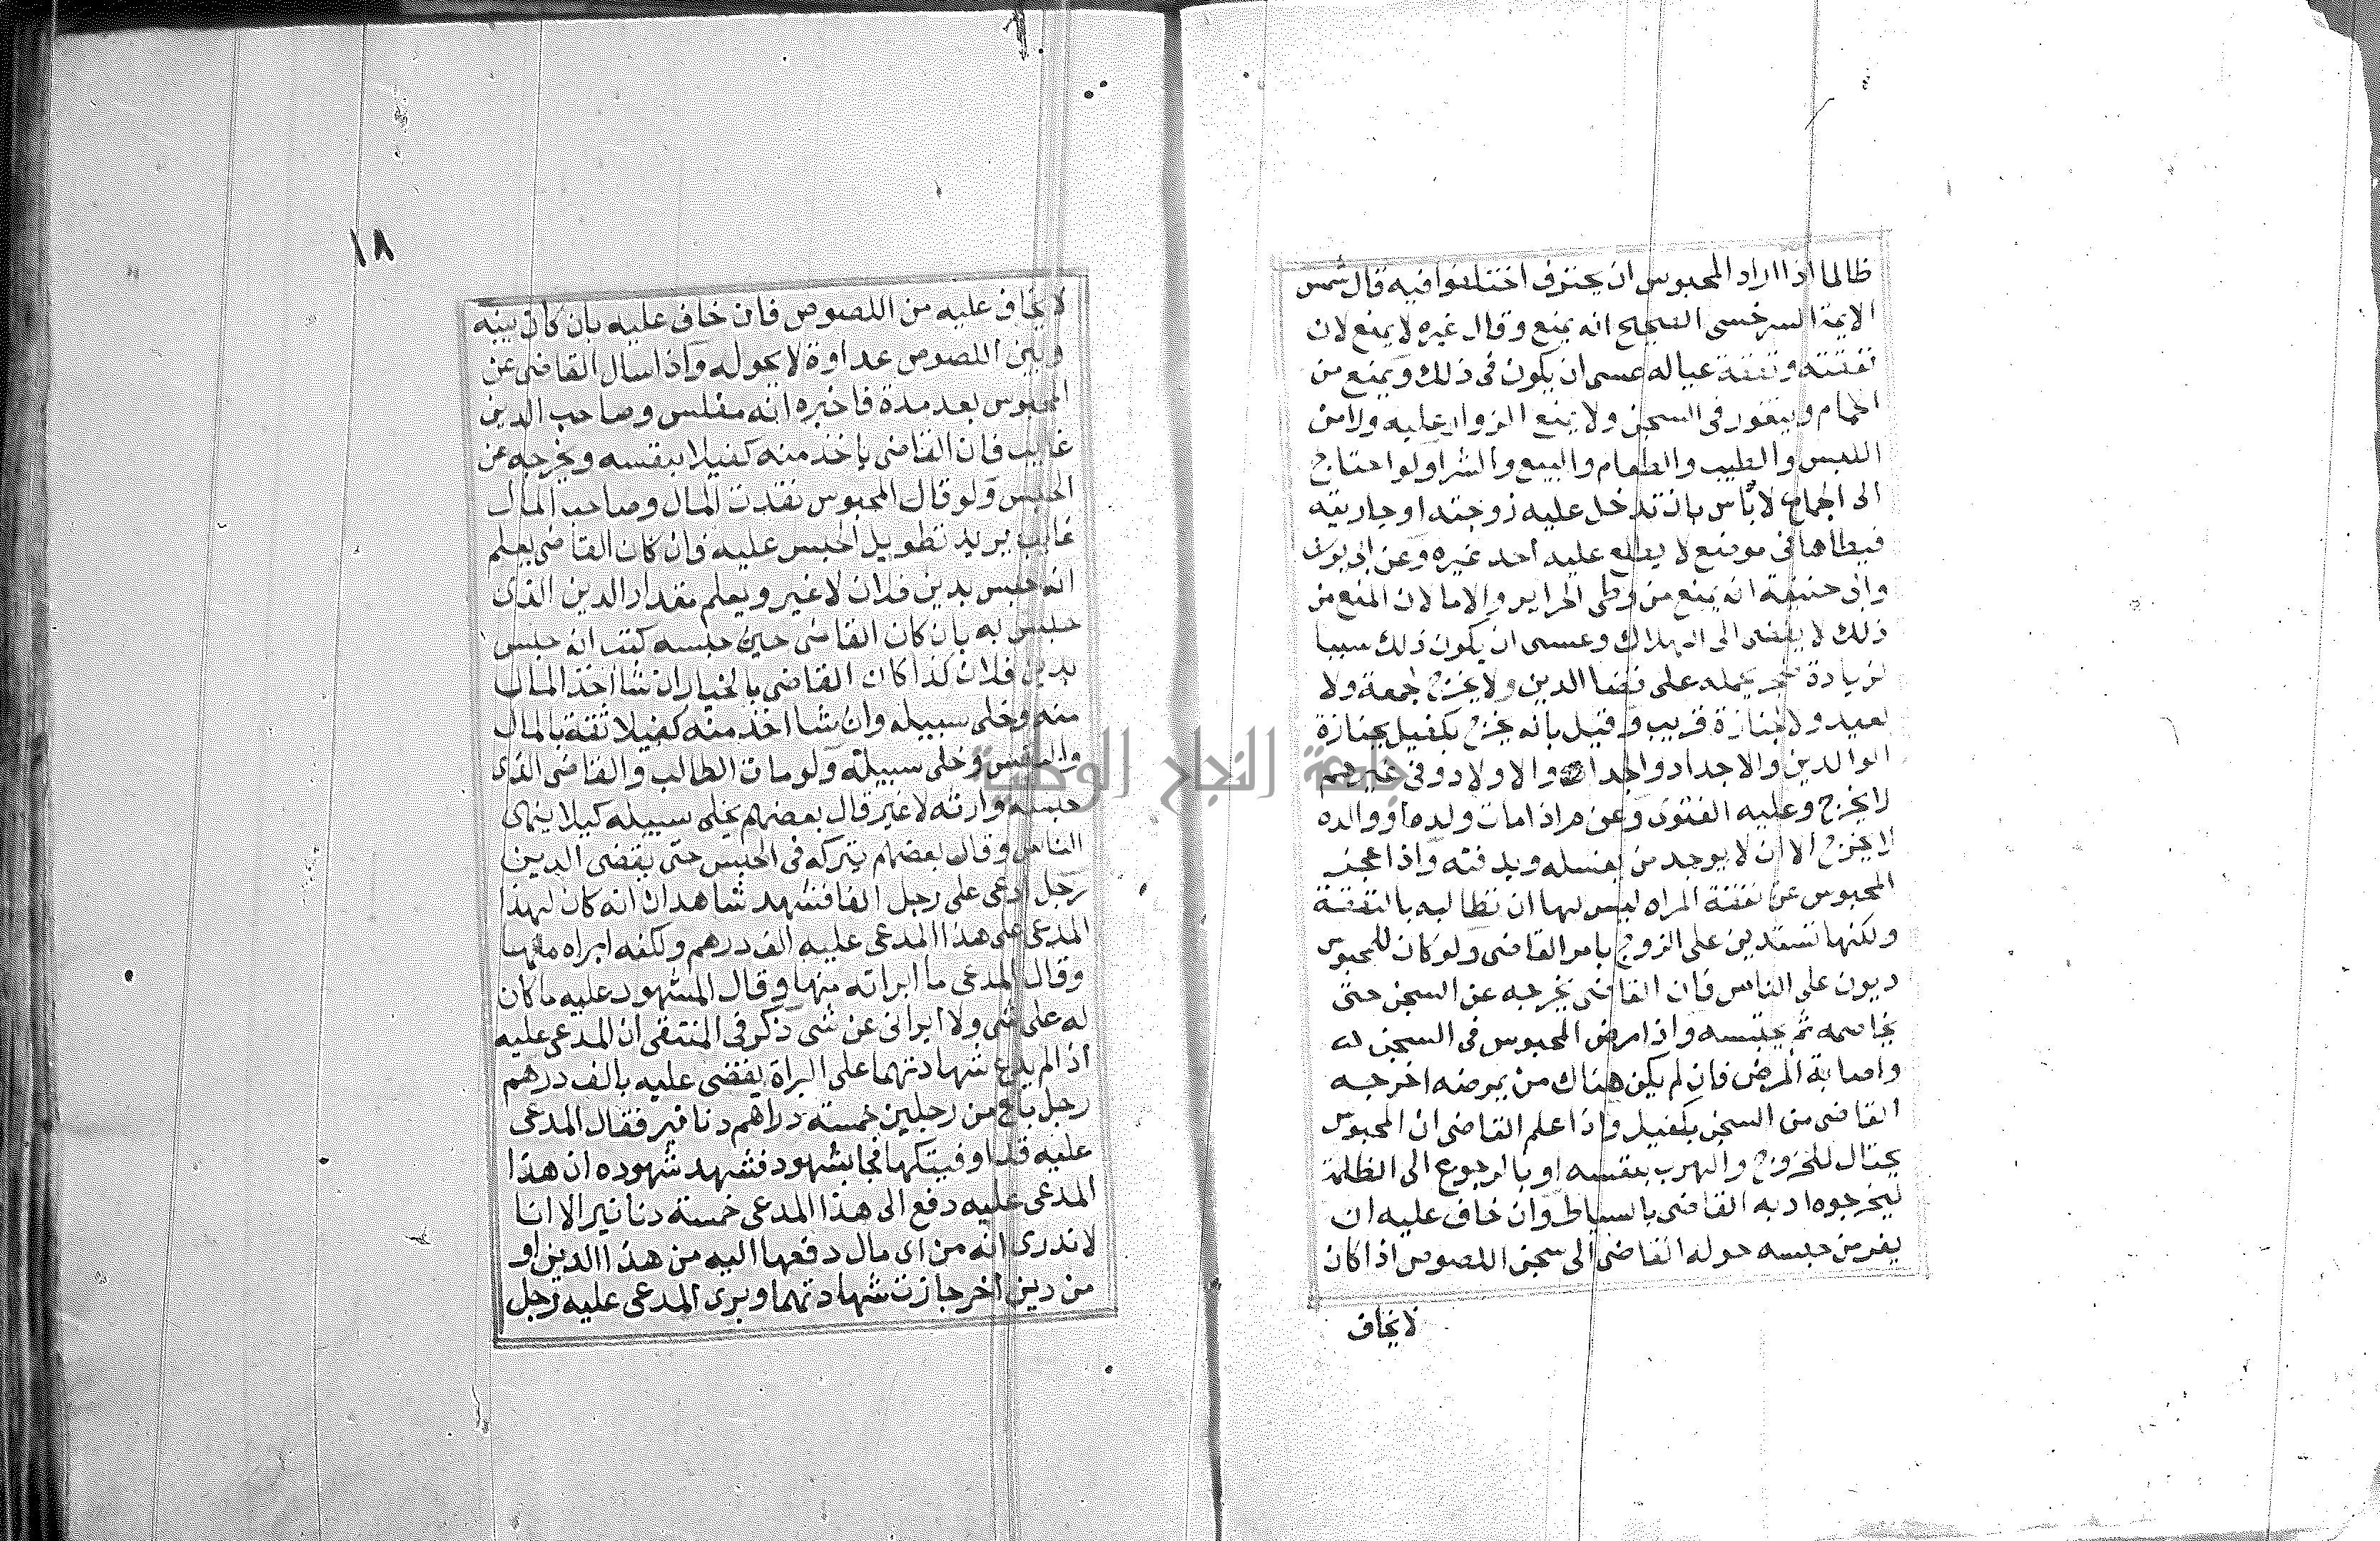 ظالما اذا اراد المحبوس ان يحترف اختلفوا فيه قال شمس
الايمة السرخسى الصحيح انه يمنع وقال غيره لا يمنع لان
نفقته ونفقة عياله عسى ان يكون فى ذلك ويمنع من
الحمام ويتنور فى السجن ولا يمنع الزوار عليه ولا من
اللبس والطيب والطعام والبيع والشرا ولو احتاج
الى الجماع لا باس بان تدخل عليه زوجته او جاريته
فيطاها فى موضع لا يطلع عليه احد غيره وعن ابى يوسف
وابى حنيفة انه يمنع من وطى الحراير والاما لان المنع من
ذلك لا يفضى الى الهلاك وعسى ان يكون ذلك سببا
لزيادة ضجر يحمله على قضا الدين ولا يخرج لجمعة ولا
لعيد ولا لجنازة قريب وقيل بانه يخرج بكفيل بجنازة
الوالدين والاجداد والجدات والاولاد وفى غيرهم
لا يخرج وعليه الفتوى وعن م اذا مات ولده او والده
لا يخرج الا ان لا يوجد من يغسله ويدفنه واذا عجز
المحبوس عن نفقة المراه ليس لها ان تطالبه بالنفقة
ولكنها تستدين على الزوج بامر القاضى ولو كان للمحبوس
ديون على الناس فان القاضى يخرجه عن السجن حتى
يخاصمه ثم يحبسه واذا مرض المحبوس فى السجن
واصابة المرض فان لم يكن هناك من يمرضه اخرجه
القاضى من السجن بكفيل واذا علم القاضى ان المحبوس
يحتال للخروج والهرب بنفسه او بالرجوع الى الظلمة
ليخرجوه ادبه القاضى بالسياط وان خاف عليه ان
يفر من حبسه حوله القاضى الى سجن اللصوص اذا كان
لا يخاف
١٨
لا يخاف عليه من اللصوص فان خاف عليه بان كان بينه
وبين اللصوص عداوة لا يحوله واذا سال القاضى عن
المحبوس بعد مدة فاخبره انه مفلس وصاحب الدين
غايب فان القاضى ياخذ منه كفيلا بنفسه ويخرجه عن
الحبس ولو قال المحبوس نقدت المال وصاحب المال
غايب يريد تطويل الحبس عليه فان كان القاضى يعلم
انه حبس بدين فلان لا غير ويعلم مقدار الدين الذى
حبس به بان كان القاضى حين حبسه كتب انه حبس
بدين فلان كذا كان القاضى بالخيار ان شا اخذ المال
منه وخلى سبيله وان شا اخذ منه كفيلا ثقة بالمال
والنفس وخلى سبيله ولو مات الطالب والقاضى الذى
حبسه وارثه لا غير قال بعضهم يخلى سبيله كيلا يتهمه
الناس وقال بعضهم يتركه فى الحبس حتى يقضى الدين
رجل ادعى على رجل الفا فشهد شاهدان انه كان لهذا
المدعى على هذا المدعى عليه الف درهم ولكنه ابراه منها
وقال المدعى ما ابراته منها وقال المشهود عليه ما كان
له على شى ولا ابرانى عن شى ذكر فى المنتقى ان المدعى عليه
اذا لم يدع شهادتهما على البراة يقضى عليه بالف درهم
رجل باع من رجلين خمسة دراهم دنانير فقال المدعى
عليه قد اوفيتكها فجا بشهود فشهد شهوده ان هذا
المدعى عليه دفع الى هذا المدعى خمسة دنانير الا انا
لا ندرى انه من اى مال دفعها اليه من هذا الدين او
من دين اخر جازت شهادتهما وبرى المدعى عليه رجل
جامعة النجاح الوطنية